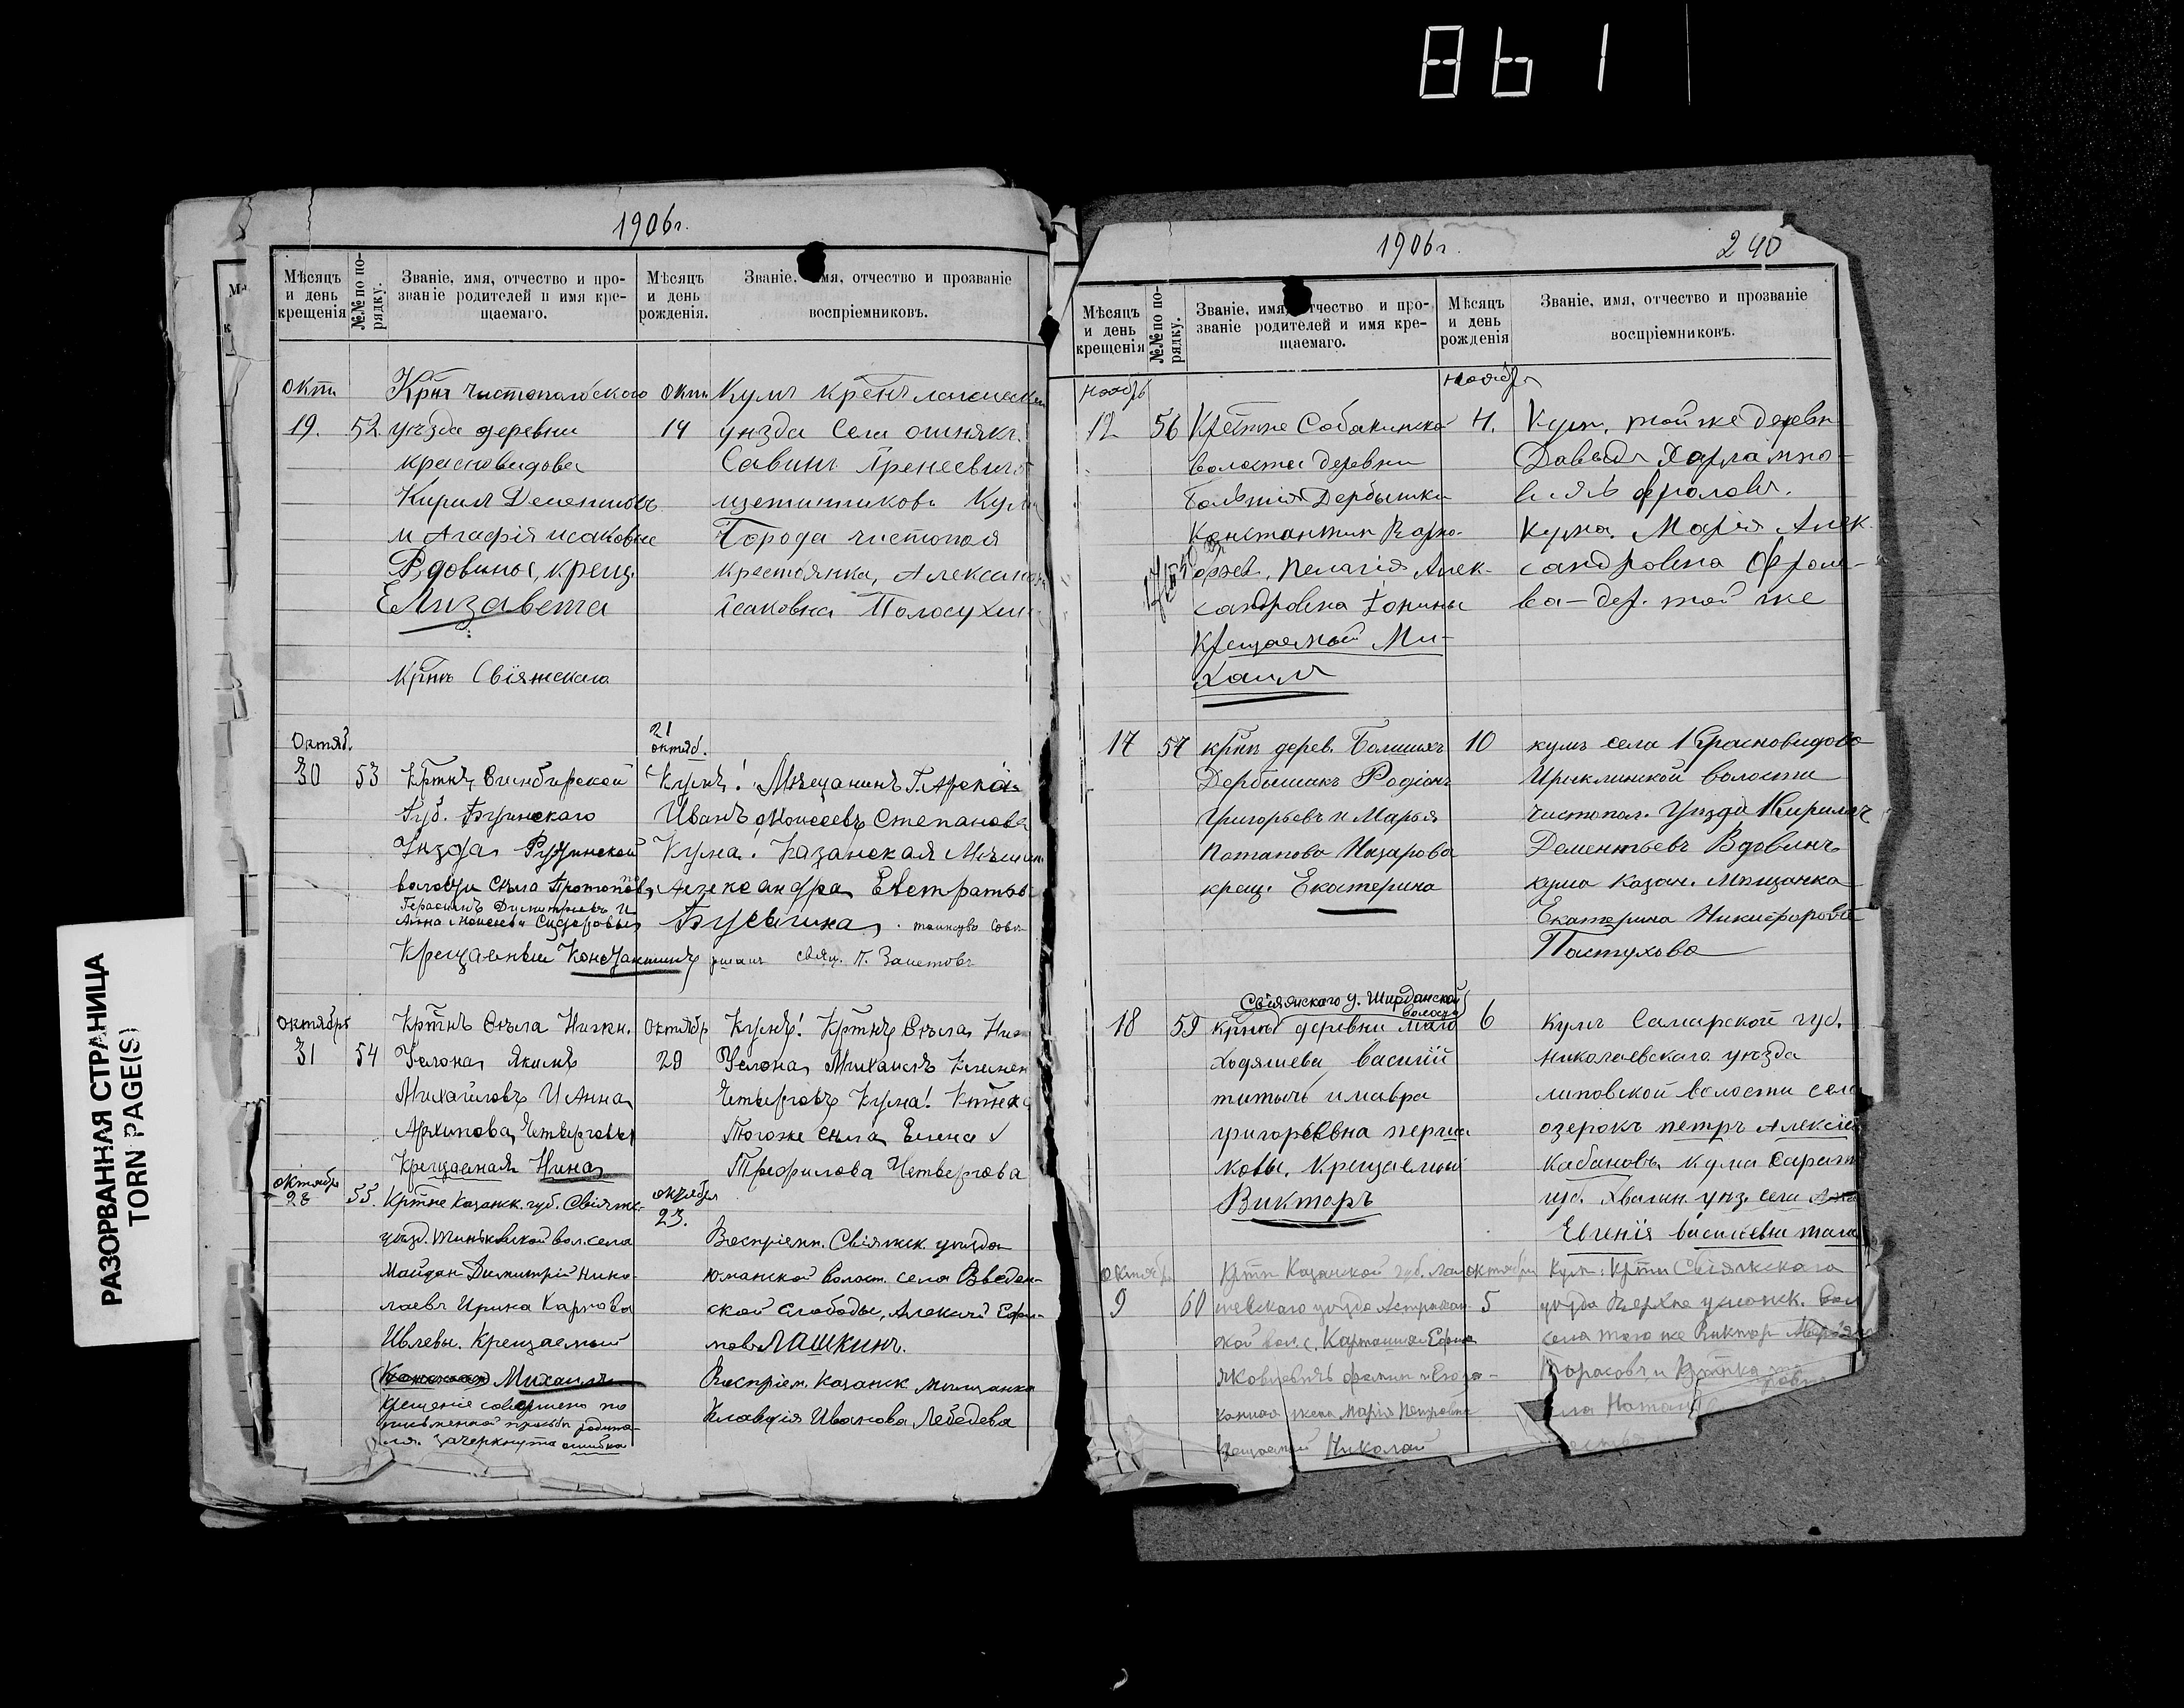 861
РАЗОРВАННАЯ СТРАНИЦА
TORN PAGE(S)
1906г.
Мѣсяцъ и день крещенія
№№ по порядку.
Званіе, имя, отчество и прозваніе родителей и имя крещаемаго.
Мѣсяцъ и день рожденія.
Званіе, имя, отчество и прозваніе воспріемниковъ.
окт.
19. 52.
Крнъ Чистопольского
уѣзда деревни
красновидова
Кирилъ Дементьевъ
и Агафія исаковна
Вдовины, крещ.
Елизавета
окт.
14
Кумъ
уѣзда села ошнякъ.
Савинъ
щетинниковъ Кума
Города чистополя
крестьянка, Александра
Ісаковна Полосухина
Крнъ Свіяжскаго
Октяб.
30 53
Кртнъ Симбирской
Губ. Буинскаго
Уѣзда,
волости Села
Герасимъ Димитріевъ И
Анна Моисеева Сидоровы
Крещаемый Константинъ
21
октяб.
Кумъ! Мѣщанинъ Г. Арска
Иванъ Моисеевъ Степановъ
Кума. Казанская Мѣщан
Александра Евстратова
таинство сове
ршалъ свящ. П.
октября
31 54
Кртнъ Сѣла Нижн.
Услона, Якимъ
Михайловъ И Анна
Архипова, Четверговы
Крещаемая Нина
октябр
29
Кумъ! Кртнъ Сѣла, Ниж
Услона, Михаилъ
Четверговъ Кума!
Тогоже сѣла, Елена
Трефилова Четвергова
октября
28 55.
Кртне Казанск. губ. Свіяжс.
уѣзд. вол. села
Майдан Димитрій Нико-
лаевъ Ирина Карпова
Ивлевы. Крещаемый
Михаилъ
Крещеніе совершено по
письменной просьбѣ родите-
ля. зачеркнута ошибка
октября
23.
Воспріемн. Свіяжск. уѣзда
Юманской волост. села Введен-
ской слободы, Алексій Ефи-
мовъ ЛАШКИНЪ.
Воспріем. Казанск мѣщанка
Клавдія Иванова Лебедева
1906г. 240
Мѣсяцъ и день крещенія
№№ по порядку.
Званіе, имя, отчество и прозваніе родителей и имя крещаемаго.
Мѣсяцъ и день рожденія
Званіе, имя, отчество и прозваніе воспріемниковъ.
ноябрь
12 56
Собакинской
волости деревни
Большія Дербышки
Константин
Пелагія Алек-
сандровна
Крещаемый Ми-
хаилъ
ноября
4.
Кумъ. той же деревн
Давыдъ Харлампо-
фроловъ.
Кума. Марія Алек-
сандровна Фроло-
ва - дер. той же
17 57
крнъ дерев. Большихъ
Дербышакъ Родіонъ
Григорьевъ и Марья
Потапова Назарова
крещ. Екатерина
10
кумъ села Красновидово
волости
чистопол. Уѣзда Кирилъ
Дементьевъ Вдовинъ
кума Казан. Мѣщанка
Екатерина Никифоровна
Пастухова
Свіяжскаго у. Ширданской
волости
18 59
деревни мало
Ходяшева Василій
титычъ и мавра
григорьевна
ковы. Крещаемый
Викторъ
6
Кумъ Самарской губ.
Николаевскаго уѣзда
липовской волости села
озерокъ петръ Алексіе
Кабановъ кума Сарат
губ. Хвалын. уѣз. села
Евгенія васильевна
октябр
9 60
Казанской губ.
уѣзда
Марія Петровна
Крещаемый Николай
октябри
5
Кум: Кртн Свіяжскаго
уѣзда Верхне услонск. вол
села того же Виктор